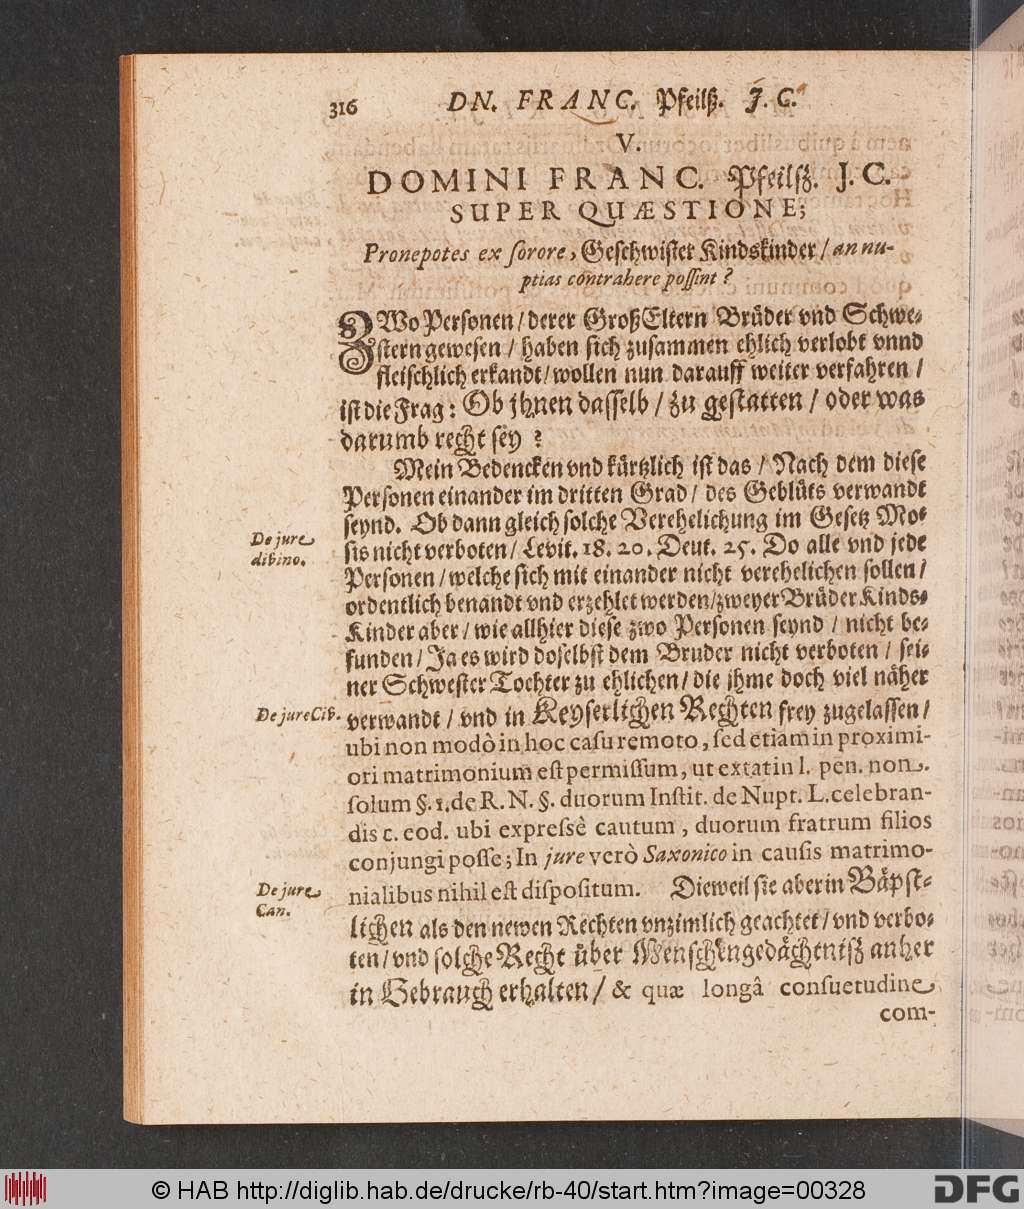 316 DN. FRANC. Pfeilß. J. C.
V.
DOMINI FRANC. Pfeilsz. J. C.
SUPER QUÆSTIONE;
Pronepotes ex sorore, Geschwister Kindskinder / an nu-
ptias contrahere possint?
ZWo Personen / derer GroßEltern Brüder vnd Schwe-
stern gewesen / haben sich zusammen ehlich verlobt vnnd
fleischlich erkandt / wollen nun darauff weiter verfahren /
ist die Frag: Ob jhnen dasselb / zu gestatten / oder was
darumb recht sey?
Mein Bedencken vnd kürtzlich ist das / Nach dem diese
Personen einander im dritten Grad / des Geblüts verwandt
seynd. Ob dann gleich solche Verehelichung im Gesetz Mo-
De jure
divino.
sis nicht verboten / Levit. 18. 20. Deut. 25. Do alle vnd jede
Personen / welche sich mit einander nicht verehelichen sollen /
ordentlich benandt vnd erzehlet werden / zweyer Brüder Kinds-
Kinder aber / wie allhier diese zwo Personen seynd / nicht be-
funden / Ja es wird doselbst dem Bruder nicht verboten / sei-
ner Schwester Tochter zu ehlichen / die jhme doch viel näher
De jure Civ.
verwandt / vnd in Keyserlichen Rechten frey zugelassen /
ubi non modò in hoc casu remoto, sed etiam in proximi-
ori matrimonium est permissum, ut extat in l. pen. non.
solum §. 1. de R. N. §. duorum Instit. de Nupt. L. celebran-
dis c. eod. ubi expressè cautum, duorum fratrum filios
conjungi posse; In jure verò Saxonico in causis matrimo-
De jure
Can.
nialibus nihil est dispositum. Dieweil sie aber in Bäpst-
lichen als den newen Rechten vnzimlich geachtet / vnd verbo-
ten / vnd solche Recht über Menschengedächtnisz anher
in Gebrauch erhalten / & quæ longâ consuetudine
com-
© HAB http://diglib.hab.de/drucke/rb-40/start.htm?image=00328
DFG